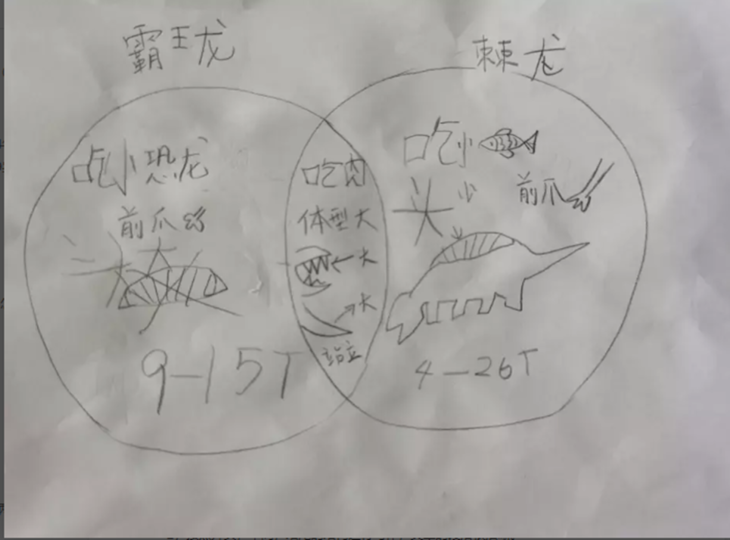 霸王龙
棘龙
吃小恐龙
前爪
头大
9-15T
吃肉
体型大
大
长
站立
吃小
头小
前爪
4-26T